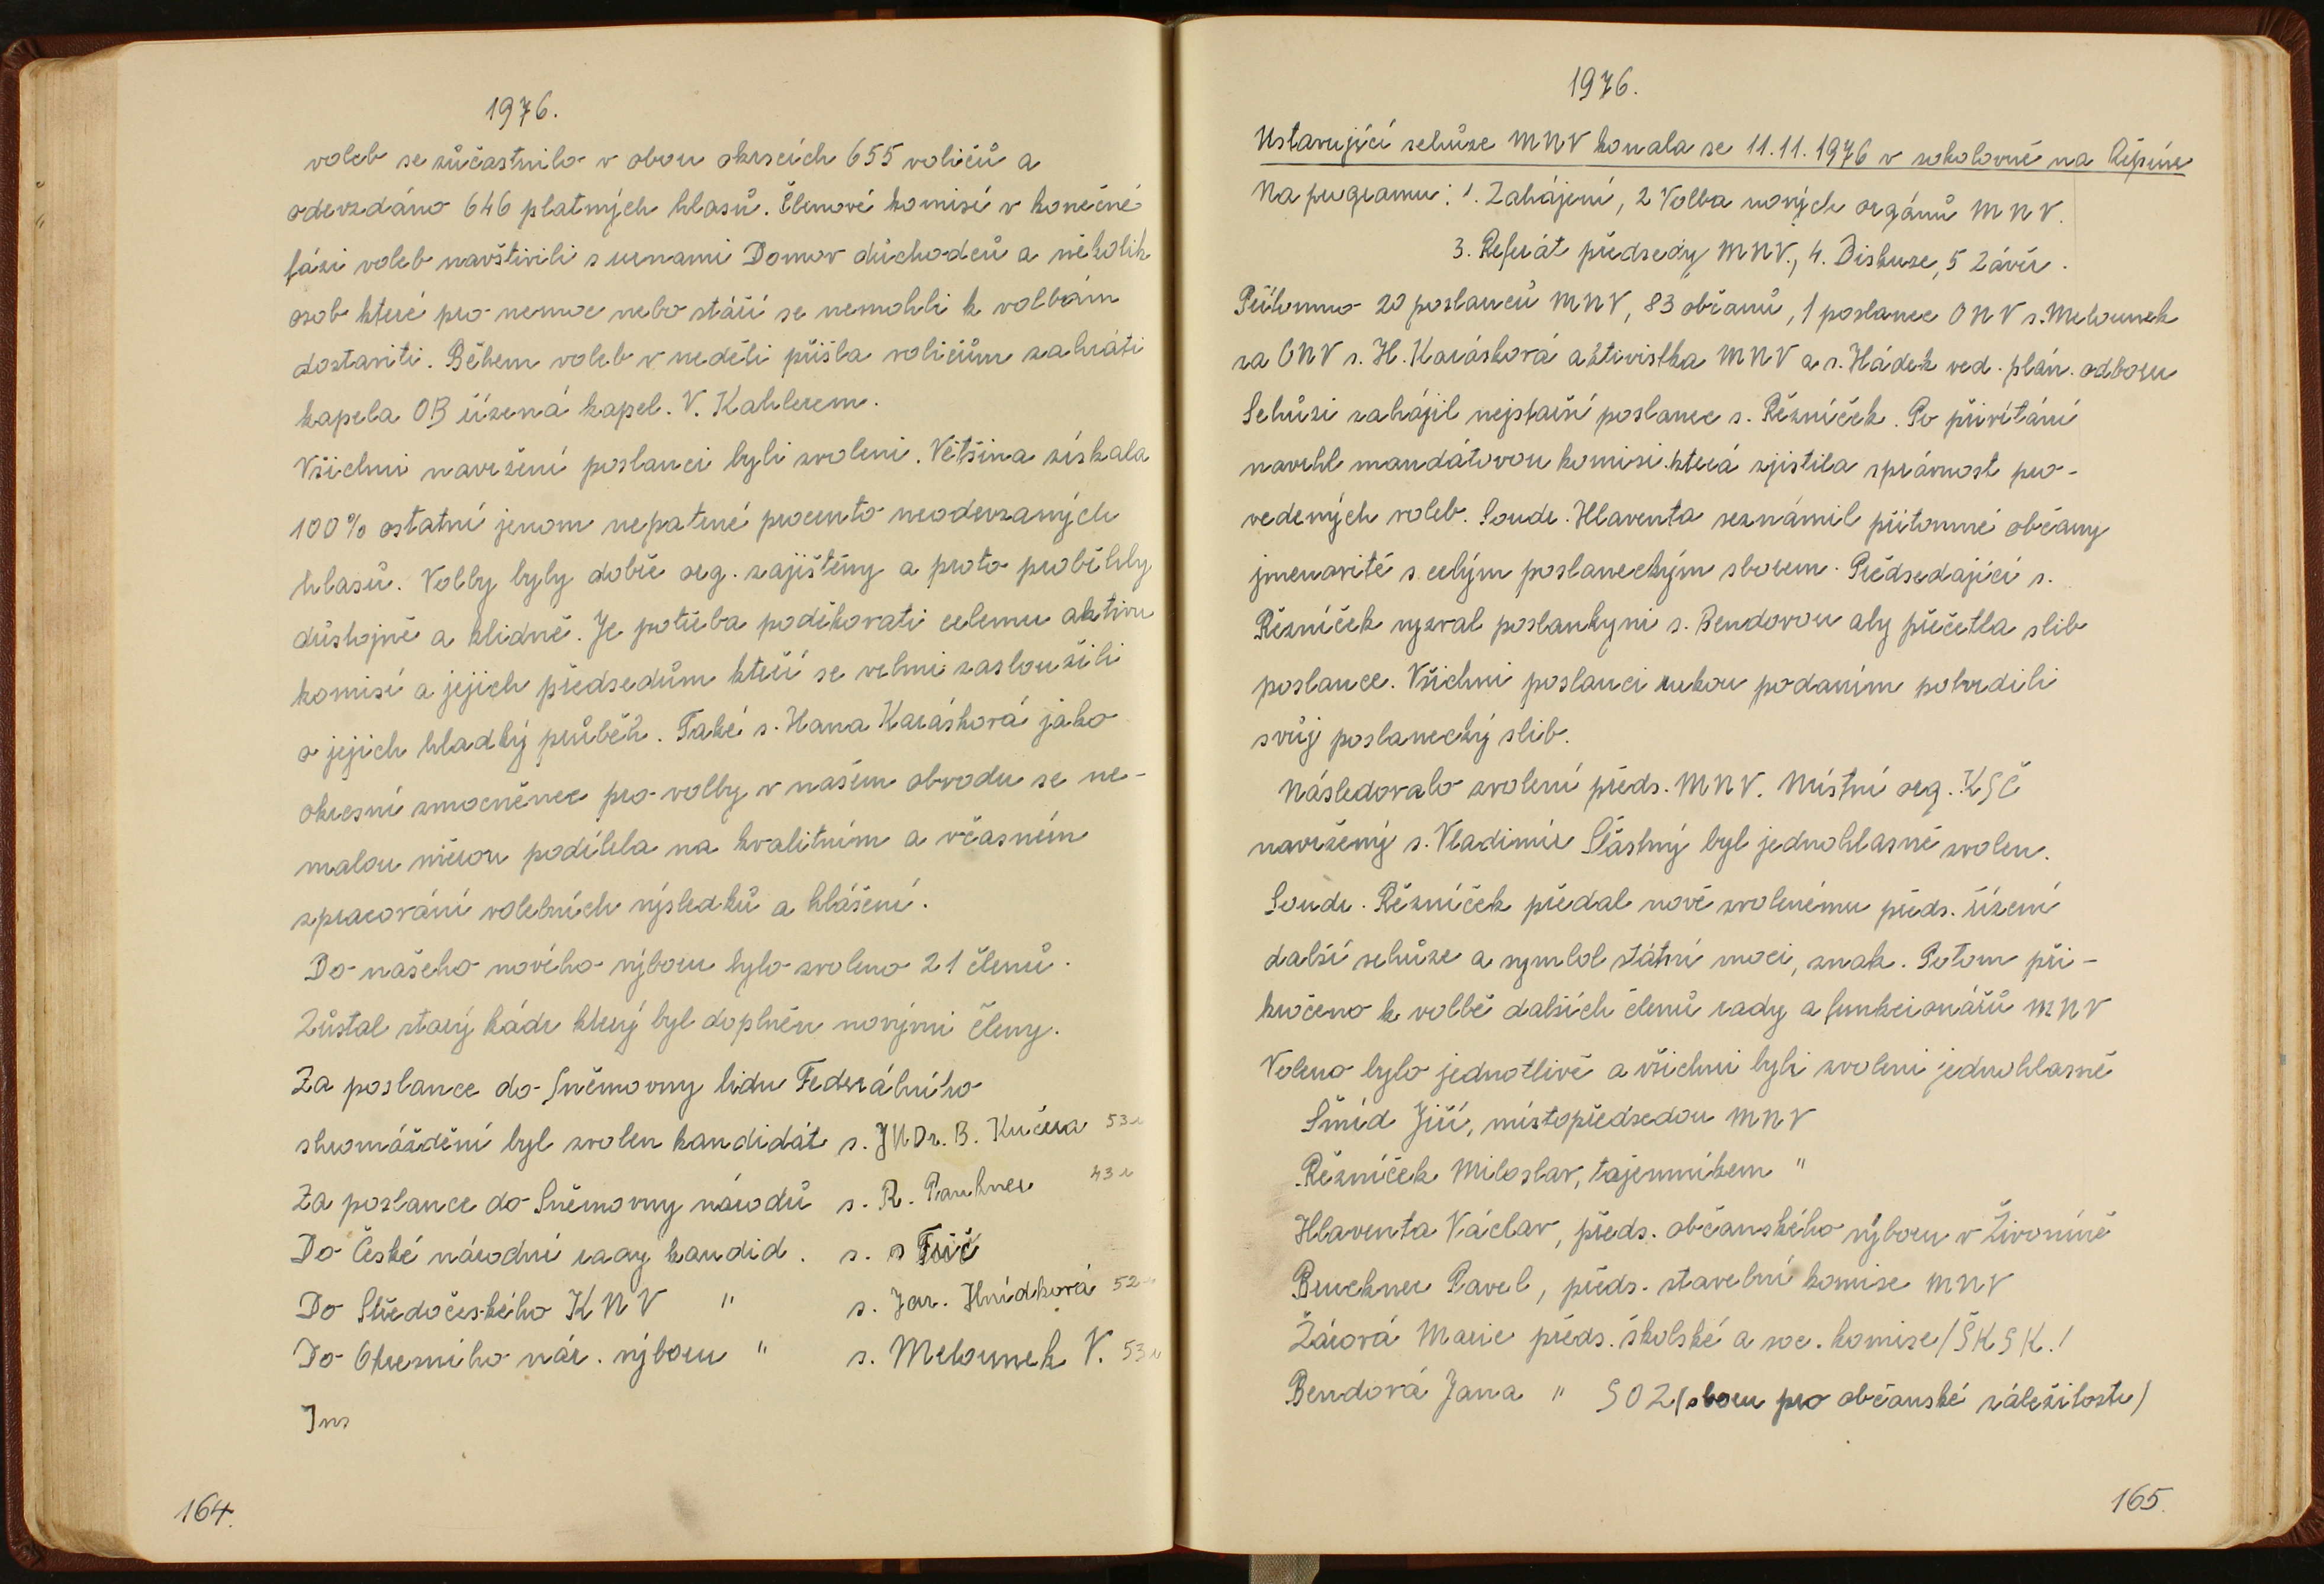 1976.
voleb se zůčastnilo v obou okrscích 655 voličů a
odevzdáno 646 platných hlasů. Členové komisí v konečné
fázi voleb navštívili s urnami Domov důchodců a několik
osob které pro nemoc nebo stáří se nemohli k volbám
dostaviti. Během voleb v neděli přišla voličům zahráti
kapela OB řízená kapel. V. Kahlerem.
Všichni navržení poslanci byli zvoleni. Většina získala
100% ostatní jenom nepatrné procento neodevzaných
hlasů. Volby byly dobře org. zajištěny a proto proběhly
důstojně a klidně. Je potřeba poděkovati celemu aktivu
komisí a jejich předsedům kteří se velmi zasloužili
o jejich hladký průběh. Také s. Hana Karásková jako
okresní zmocněnec pro volby v našem obvodu se ne-
malou měrou podílela na kvalitním a včasném
zpracování volebních výsledků a hlášení.
Do našeho nového výboru bylo zvoleno 21 členů.
Zůstal starý kádr který byl doplněn novými členy.
Za poslance do Sněmovny lidu Federálního
shromáždění byl zvolen kandidát s. JUDr. B. Kučera 53 r
Za poslance do Sněmovny národů s. R. 43 r
Do České národní rady kandid. s. s Frič
Do Středočeského KNV " s. Jar. Hnídková 52 r
Do Okresního nár. výboru " s. Melounek V. 53 r
164.
1976.
Ustavující schůze MNV konala se 11.11.1976 v sokolovně na Řepíně
Na programu: 1. Zahájení, 2 Volba nových orgánů MNV.
3. Referát předsedy MNV., 4. Diskuze, 5 Závěr.
Přítomno 20 poslanců MNV, 83 občanů, 1 poslanec ONV s. Melounek
za ONV s. H. Karásková aktivistka MNV a s. Hádek ved. plán. odboru
Schůzi zahájil nejstarší poslanec s. Řezníček. Po přivítání
navrhl mandátovou komisi která zjistila správnost pro-
vedených voleb. Soudr. Hlaventa seznámil přítomné občany
jmenovitě s celým poslaneckým sborem. Předsedající s.
Řezníček vyzval poslankyni s. Bendovou aby přečetla slib
poslance. Všichni poslanci rukou podaním potvrdili
svůj poslanecký slib.
Následovalo zvolení předs. MNV. Místní org. KSČ
navržený s. Vladimír Šťastný byl jednohlasně zvolen.
Soudr. Řezníček předal nově zvolenému předs. řízení
další schůze a symbol státní moci, znak. Potom při-
kročeno k volbě dalších členů rady a funkcionářů MNV
Voleno bylo jednotlivě a všichni byli zvoleni jednohlasně
Šmíd Jiří, místopředsedou MNV
Řezníček Miloslav, tajemníkem "
Hlaventa Václav, předs. občanského výboru v Živoníně
Bruckner Pavel, předs. stavební komise MNV
Žárová Marie předs. školské a soc. komise /ŠKSK./
Bendová Jana " SOZ (sboru pro občanské záležitosti)
165.